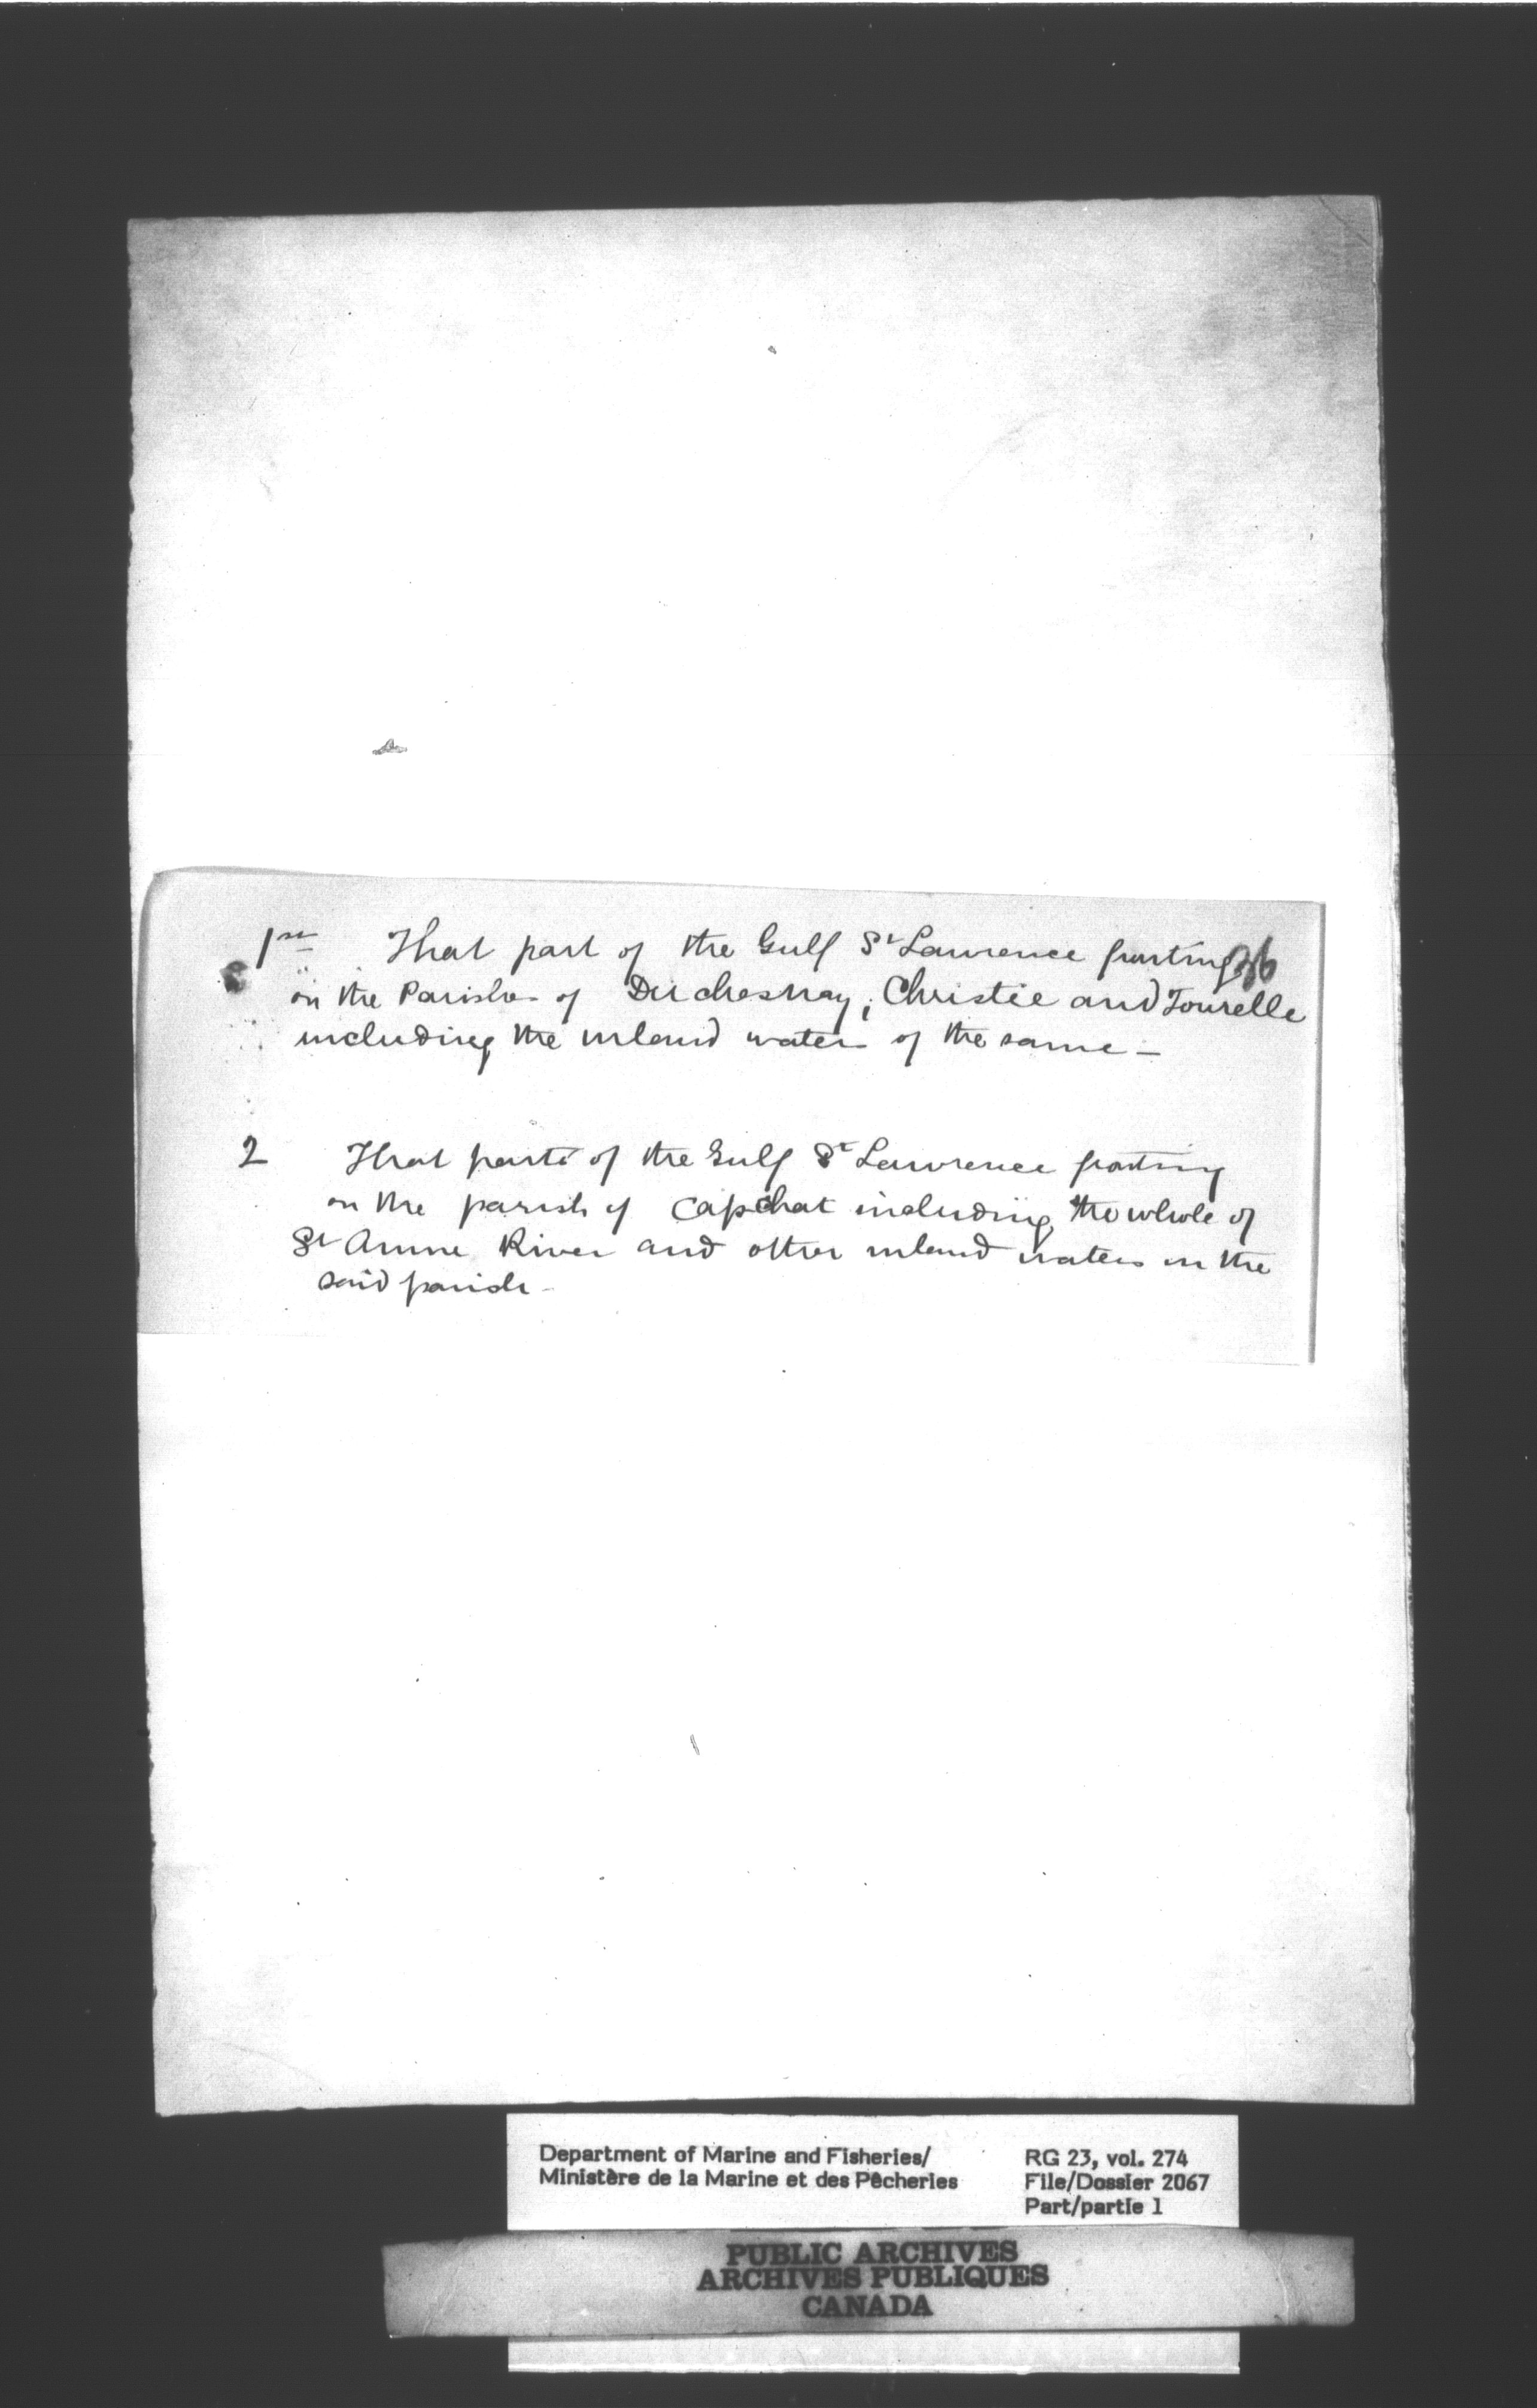 1st That part of the Gulf St Lawrence fronting 36
on the Parishes of Duchesnay, Christie and Tourelle
including the inland waters of the same —
2 That parts of the Gulf St Lawrence fronting
on the parish of Capchat including the whole of
St Anne River and other inland waters in the
said parish -
Department of Marine and Fisheries/
Ministère de la Marine et des Pêcheries
RG 23, vol. 274
File/Dossier 2067
Part/partie 1
PUBLIC ARCHIVES
ARCHIVES PUBLIQUES
CANADA